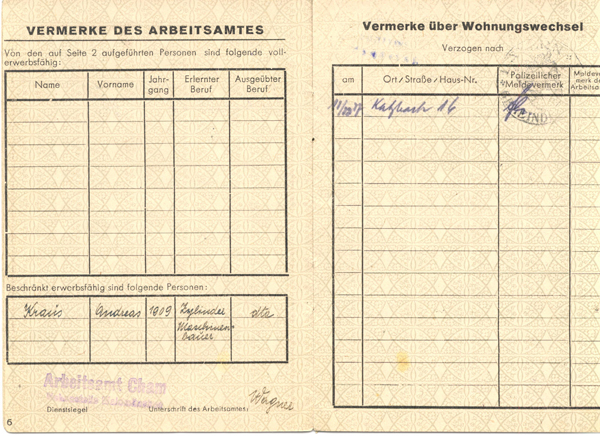 VERMERKE DES ARBEITSAMTES
Von den auf Seite 2 aufgeführten Personen sind folgende voll-
erwerbsfähig:
Name Vorname Jahr- Erlernter Ausgeübter
gang Beruf Beruf
Beschränkt erwerbsfähig sind folgende Personen:
Kraus Andreas 1909 Zylinder dto
Maschinen-
bauer
Arbeitsamt Cham
Dienstsiegel Unterschrift des Arbeitsamtes: Wagner
6
Vermerke über Wohnungswechsel
Verzogen nach
am Ort/Straße/Haus-Nr. Polizeilicher Meldever-
Meldevermerk merk de
Arbeitsa
Katzbach 16